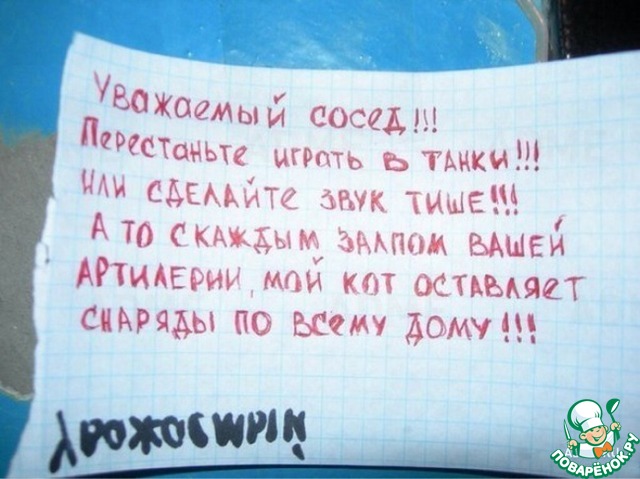 Уважаемый сосед!!!
Перестаньте играть в танки!!!
или сделайте звук тише!!!
А то с каждым залпом вашей
артилерии, мой кот оставляет
снаряды по всему дому!!!
ПОВАРЁНОК.РУ